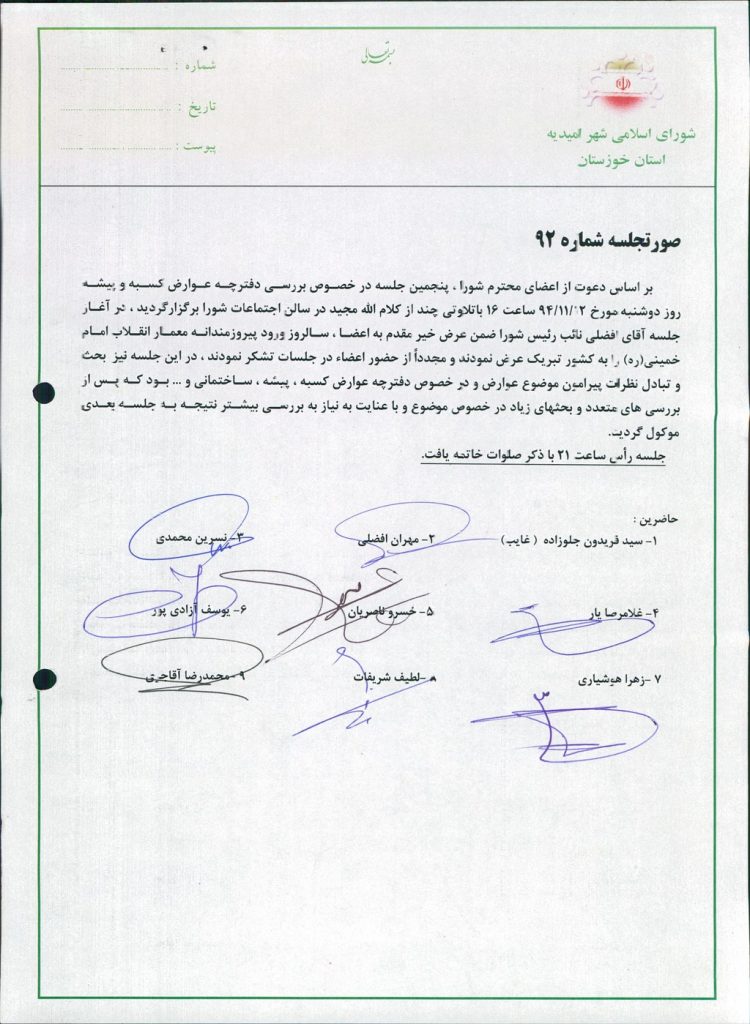 بسمه تعالی
شماره :
تاریخ :
پیوست :
شورای اسلامی شهر امیدیه
استان خوزستان
صورتجلسه شماره ۹۲
بر اساس دعوت از اعضای محترم شورا ، پنجمین جلسه در خصوص بررسی دفترچه عوارض کسبه و پیشه
روز دوشنبه مورخ ۹۴/۱۱/۱۲ ساعت ۱۶ باتلاوتی چند از کلام الله مجید در سالن اجتماعات شورا برگزارگردید ، در آغاز
جلسه آقای افضلی نائب رئیس شورا ضمن عرض خیر مقدم به اعضا ، سالروز ورود پیروزمندانه معمار انقلاب امام
خمینی(ره) را به کشور تبریک عرض نمودند و مجدداً از حضور اعضاء در جلسات تشکر نمودند ، در این جلسه نیز بحث
و تبادل نظرات پیرامون موضوع عوارض و در خصوص دفترچه عوارض کسبه ، پیشه ، ساختمانی و ... بود که پس از
بررسی های متعدد و بحثهای زیاد در خصوص موضوع و با عنایت به نیاز به بررسی بیشتر نتیجه به جلسه بعدی
موکول گردید.
جلسه رأس ساعت ۲۱ با ذکر صلوات خاتمه یافت.
حاضرین :
۱- سید فریدون جلوزاده ( غایب) ۲- مهران افضلی ۳- نسرین محمدی
۴- غلامرضا یار ۵- خسرو ناصریان ۶- یوسف آزادی پور
۷ -زهرا هوشیاری ۸-لطیف شریفات ۹ -محمدرضا آقاجری